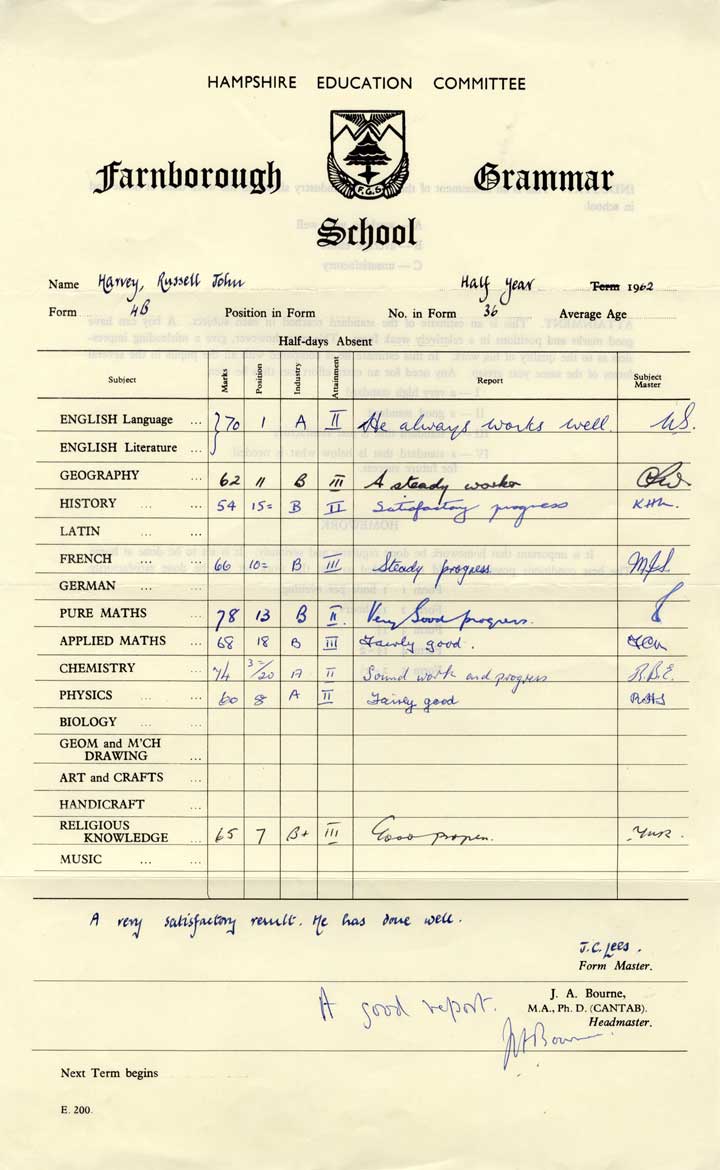 HAMPSHIRE EDUCATION COMMITTEE
F.G.S
Farnborough Grammar
School
Name Harvey, Russell John Half Year Term 1962
Form 4B Position in Form No. in Form 36 Average Age
Half-days Absent
Subject Marks Position Industry Attainment Report Subject Master
ENGLISH Language ... } 70 1 A II He always works well.
ENGLISH Literature ...
GEOGRAPHY ... 62 11 B III A steady worker
HISTORY ... ... 54 15= B II Satisfactory progress
LATIN ... ...
FRENCH ... ... 66 10= B III Steady progress.
GERMAN ... ...
PURE MATHS ... 78 13 B II Very Good progress.
APPLIED MATHS ... 68 18 B III Fairly good.
CHEMISTRY ... 74 3=/20 A II Sound work and progress R.B.E.
PHYSICS ... ... 60 8 A II Fairly good
BIOLOGY ... ...
GEOM and M'CH
DRAWING ...
ART and CRAFTS ...
HANDICRAFT ...
RELIGIOUS
KNOWLEDGE ... 65 7 B+ III Good
MUSIC ... ...
A very satisfactory result. He has done well.
J.C. Lees.
Form Master.
A good report.
J. A. Bourne,
M.A., Ph. D. (CANTAB).
Headmaster.
JABourne
Next Term begins
E. 200.